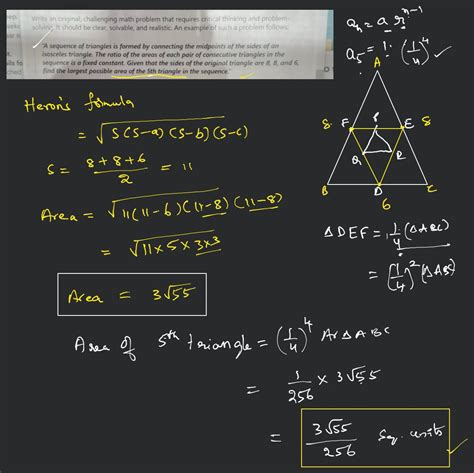 Write an original, challenging math problem that requires critical thinking and problem-
solving. It should be clear, solvable, and realistic. An example of such a problem follows:
"A sequence of triangles is formed by connecting the midpoints of the sides of an
isosceles triangle. The ratio of the areas of each pair of consecutive triangles in the
sequence is a fixed constant. Given that the sides of the original triangle are 8, 8, and 6,
find the largest possible area of the 5th triangle in the sequence."
aₙ = a rⁿ⁻¹
a₅ = 1 · (1/4)⁴ ✓
Heron's formula
= √S(S-a)(S-b)(S-c)
S = 8+8+6/2 = 11
Area = √11(11-6)(11-8)(11-8)
= √11×5×3×3
Area = 3√55
A
8 F P E 8
Q R
B D C
6
ΔDEF = 1/4 (ΔABC)
= (1/4)² (ΔABC)
Area of 5th triangle = (1/4)⁴ Ar ΔABC
= 1/256 × 3√55
= 3√55/256 Sq. units ✓